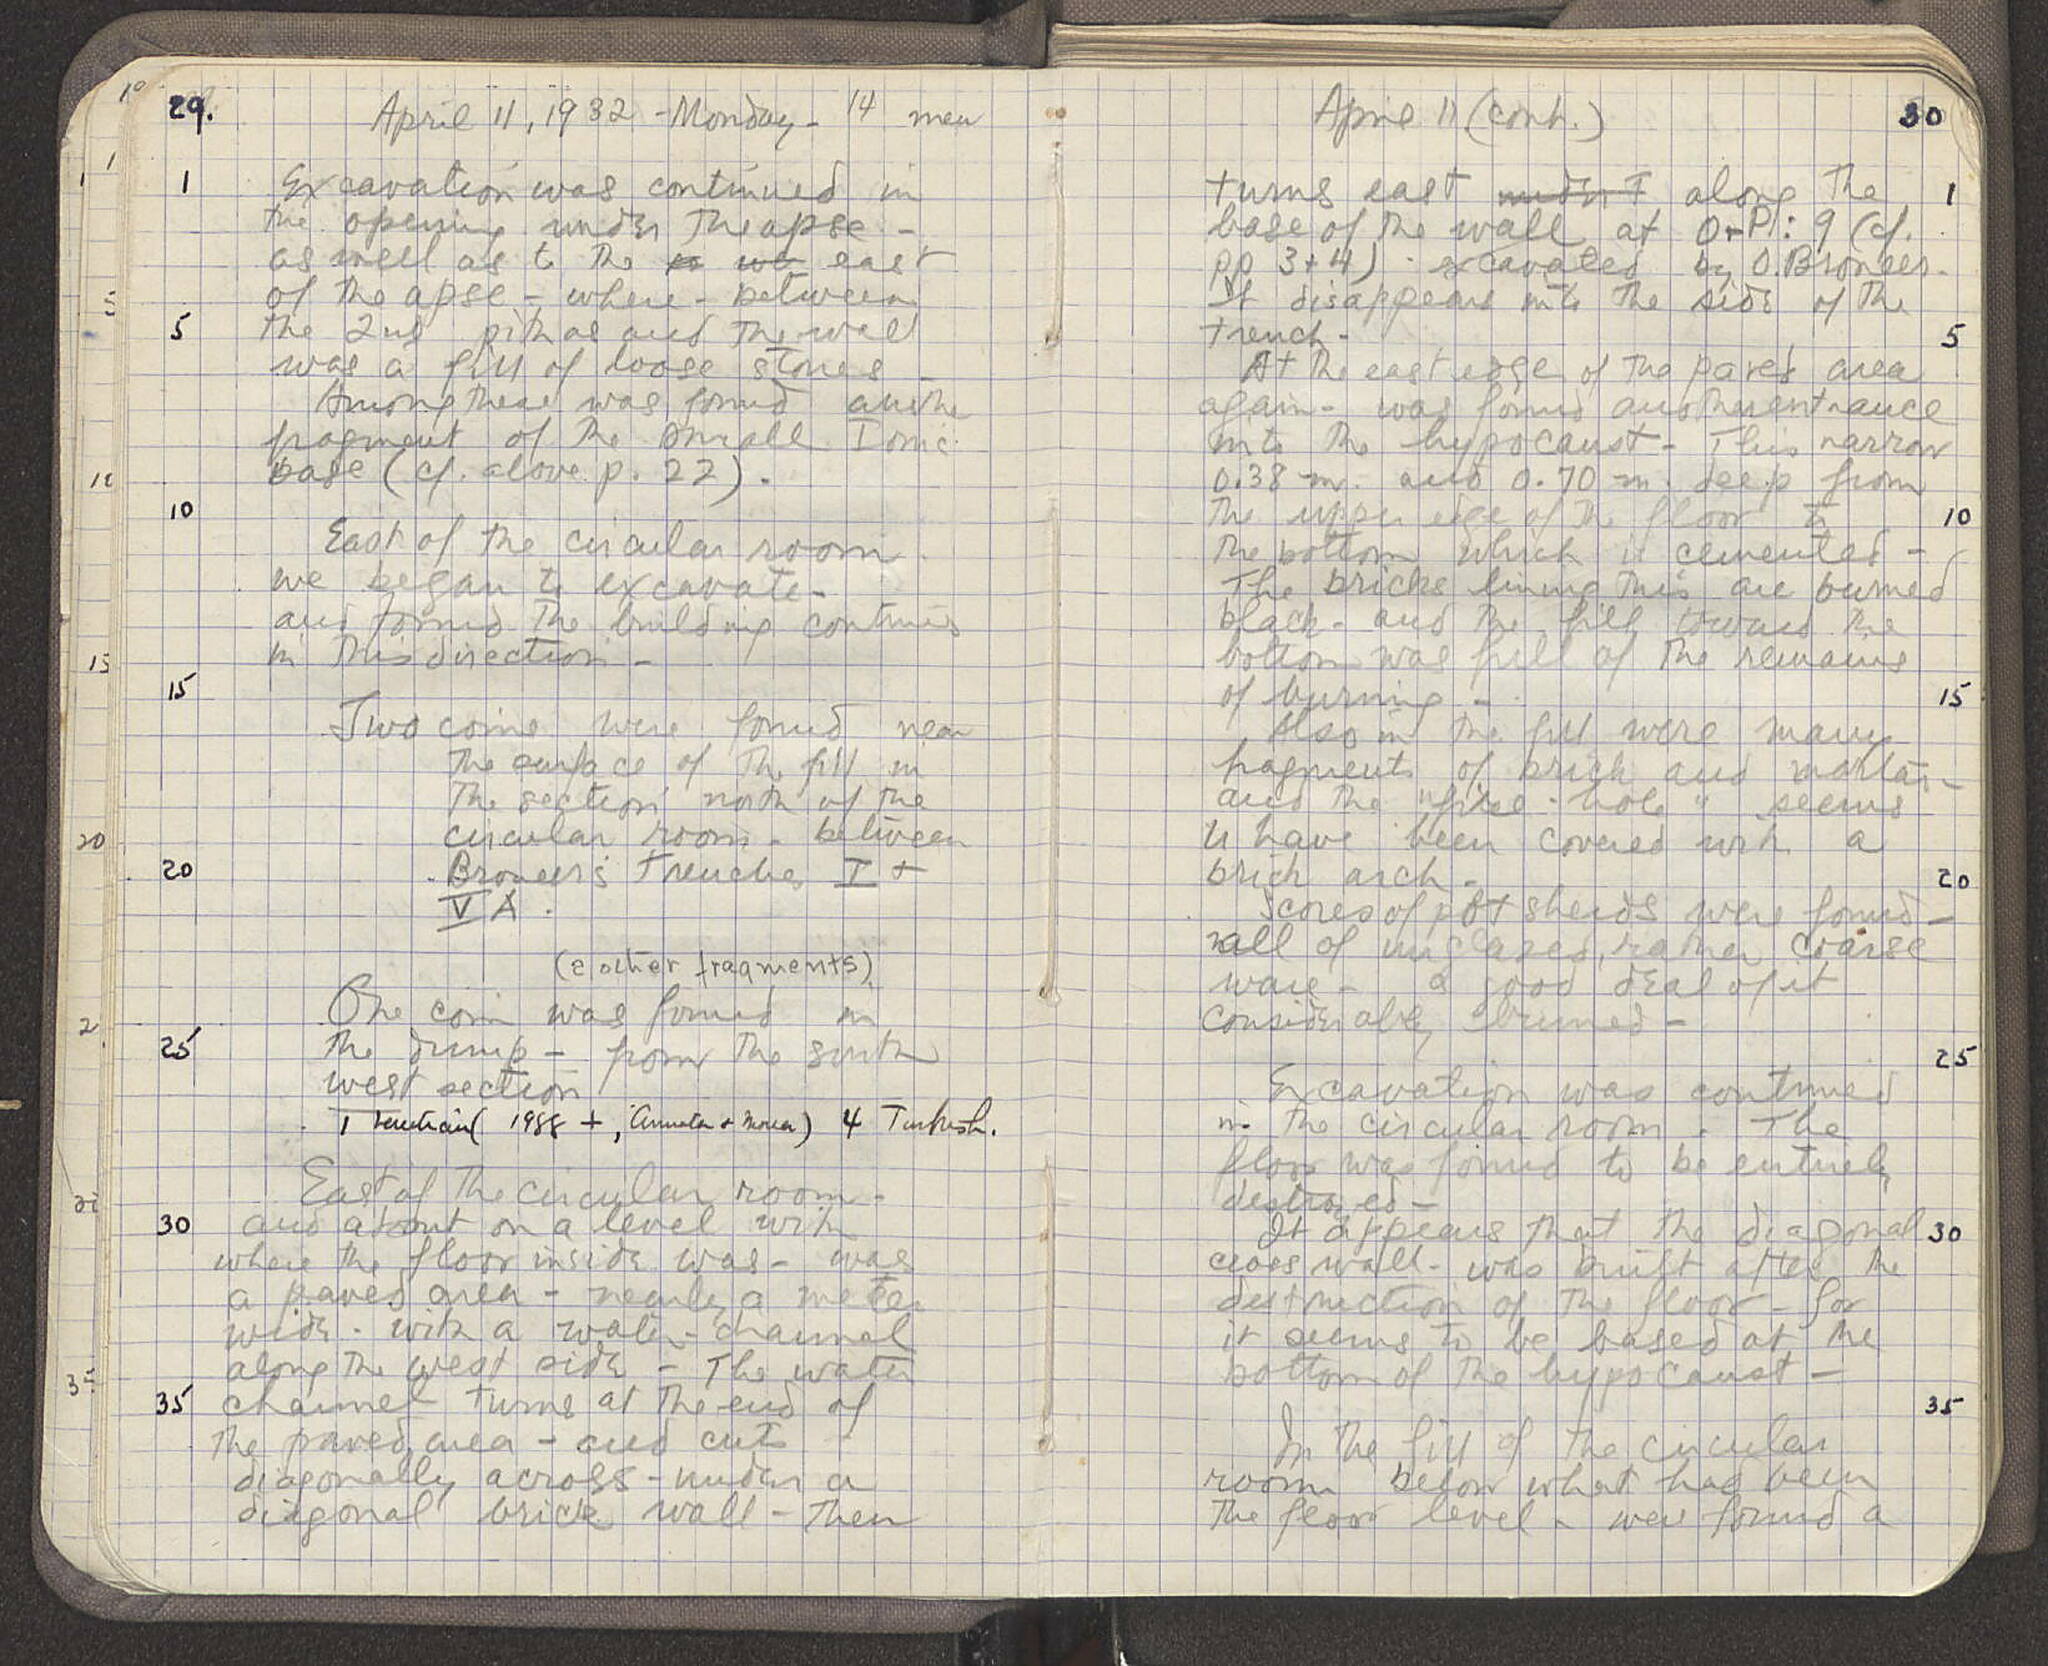 29.
April 11, 1932 - Monday - 14 men
1 Excavation was continued in
the opening under the apse -
as well as to the east
of the apse - where - between
5 the 2nd pithos and the wall
was a fill of loose stones -
Among these was found another
fragment of the small Ionic
base (cf. above p. 22).
10
East of the circular room
we began to excavate -
and found the building continues
in this direction -
15
Two coins were found near
the surface of the fill in
the section north of the
circular room - between
20 Broneer's trenches I +
V A.
(2 other fragments)
One coin was found in
25 the dump - from the south
west section
1 Venetian ( 1988 +, Armata + Morea) 4 Turkish.
East of the circular room -
30 and about on a level with
where the floor inside was - was
a paved area - nearly a meter
wide - with a water-channel
along the west side - The water
35 channel turns at the end of
the paved area - and cuts
diagonally across - under a
diagonal brick wall - Then
30
April 11 (cont.)
turns east under t along the 1
base of the wall at O-P: 9 (cf.
pp 3+4) - excavated by O. Broneer.
It disappears into the side of the
trench - 5
At the east edge of the paved area
again - was found another entrance
into the hypocaust - This narrow
0.38 m. and 0.70 m. deep from
the upper edge of the floor to 10
the bottom which is cemented -
The bricks lining this are burned
black - and the fill toward the
bottom was full of the remains
of burning - 15
Also in the fill were many
fragments of brick and mortar -
and the "fire-hole" seems
to have been covered with a
brick arch - 20
Scores of pot sherds were found -
all of unglazed, rather coarse
ware - a good deal of it
considerably burned -
25
Excavation was continued
in the circular room. The
floor was found to be entirely
destroyed -
It appears that the diagonal 30
cross wall - was built after the
destruction of the floor - for
it seems to be based at the
bottom of the hypocaust -
35
In the fill of the circular
room below what had been
the floor level - were found a